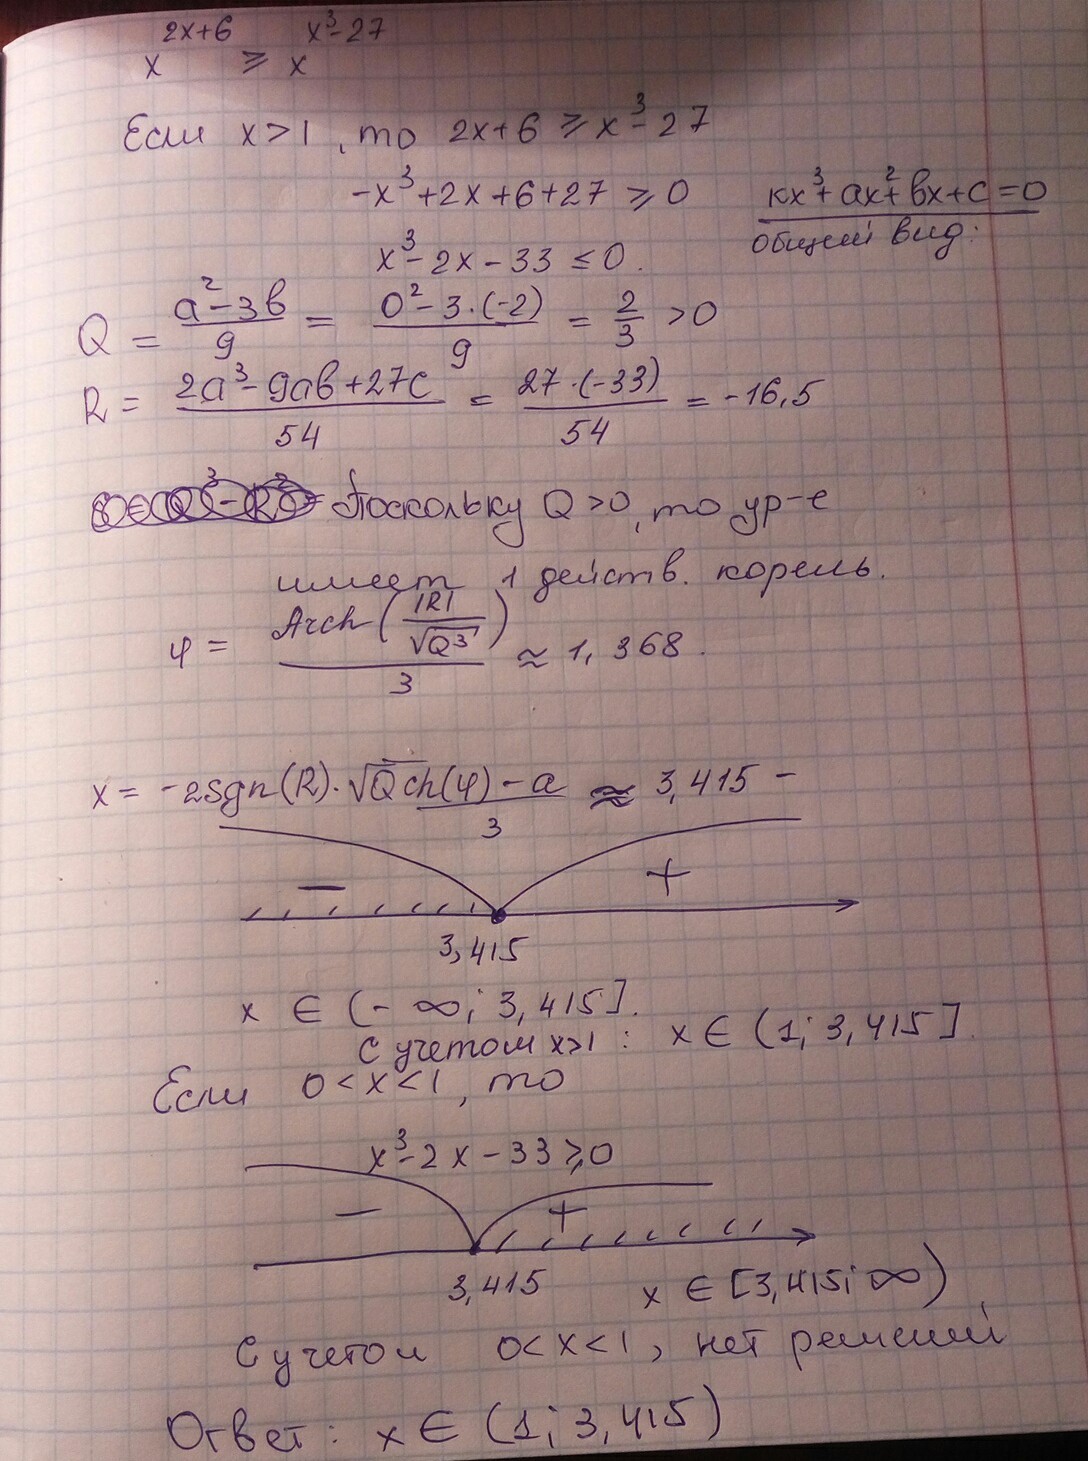 x^(2x+6) ≥ x^(x³-27)
Если x>1, то 2x+6 ≥ x³-27
-x³+2x+6+27 ≥ 0
kx³+ax²+bx+c=0
общий вид:
x³-2x-33 ≤ 0.
Q = (a²-3b)/9 = (0²-3·(-2))/9 = 2/3 >0
R = (2a³-9ab+27c)/54 = (27·(-33))/54 = -16,5
Поскольку Q>0, то ур-е
имеет 1 действ. корень.
φ = Arch(|R|/√Q³)/3 ≈ 1,368.
x = -2sgn(R)·√Q ch(φ) - a/3 ≈ 3,415 -
- +
3,415
x ∈ (-∞; 3,415].
С учетом x>1: x ∈ (1; 3,415].
Если 0<x<1, то
x³-2x-33≥0
- +
3,415 x ∈ [3,415; ∞)
С учетом 0<x<1, нет решений
Ответ: x ∈ (1; 3,415)